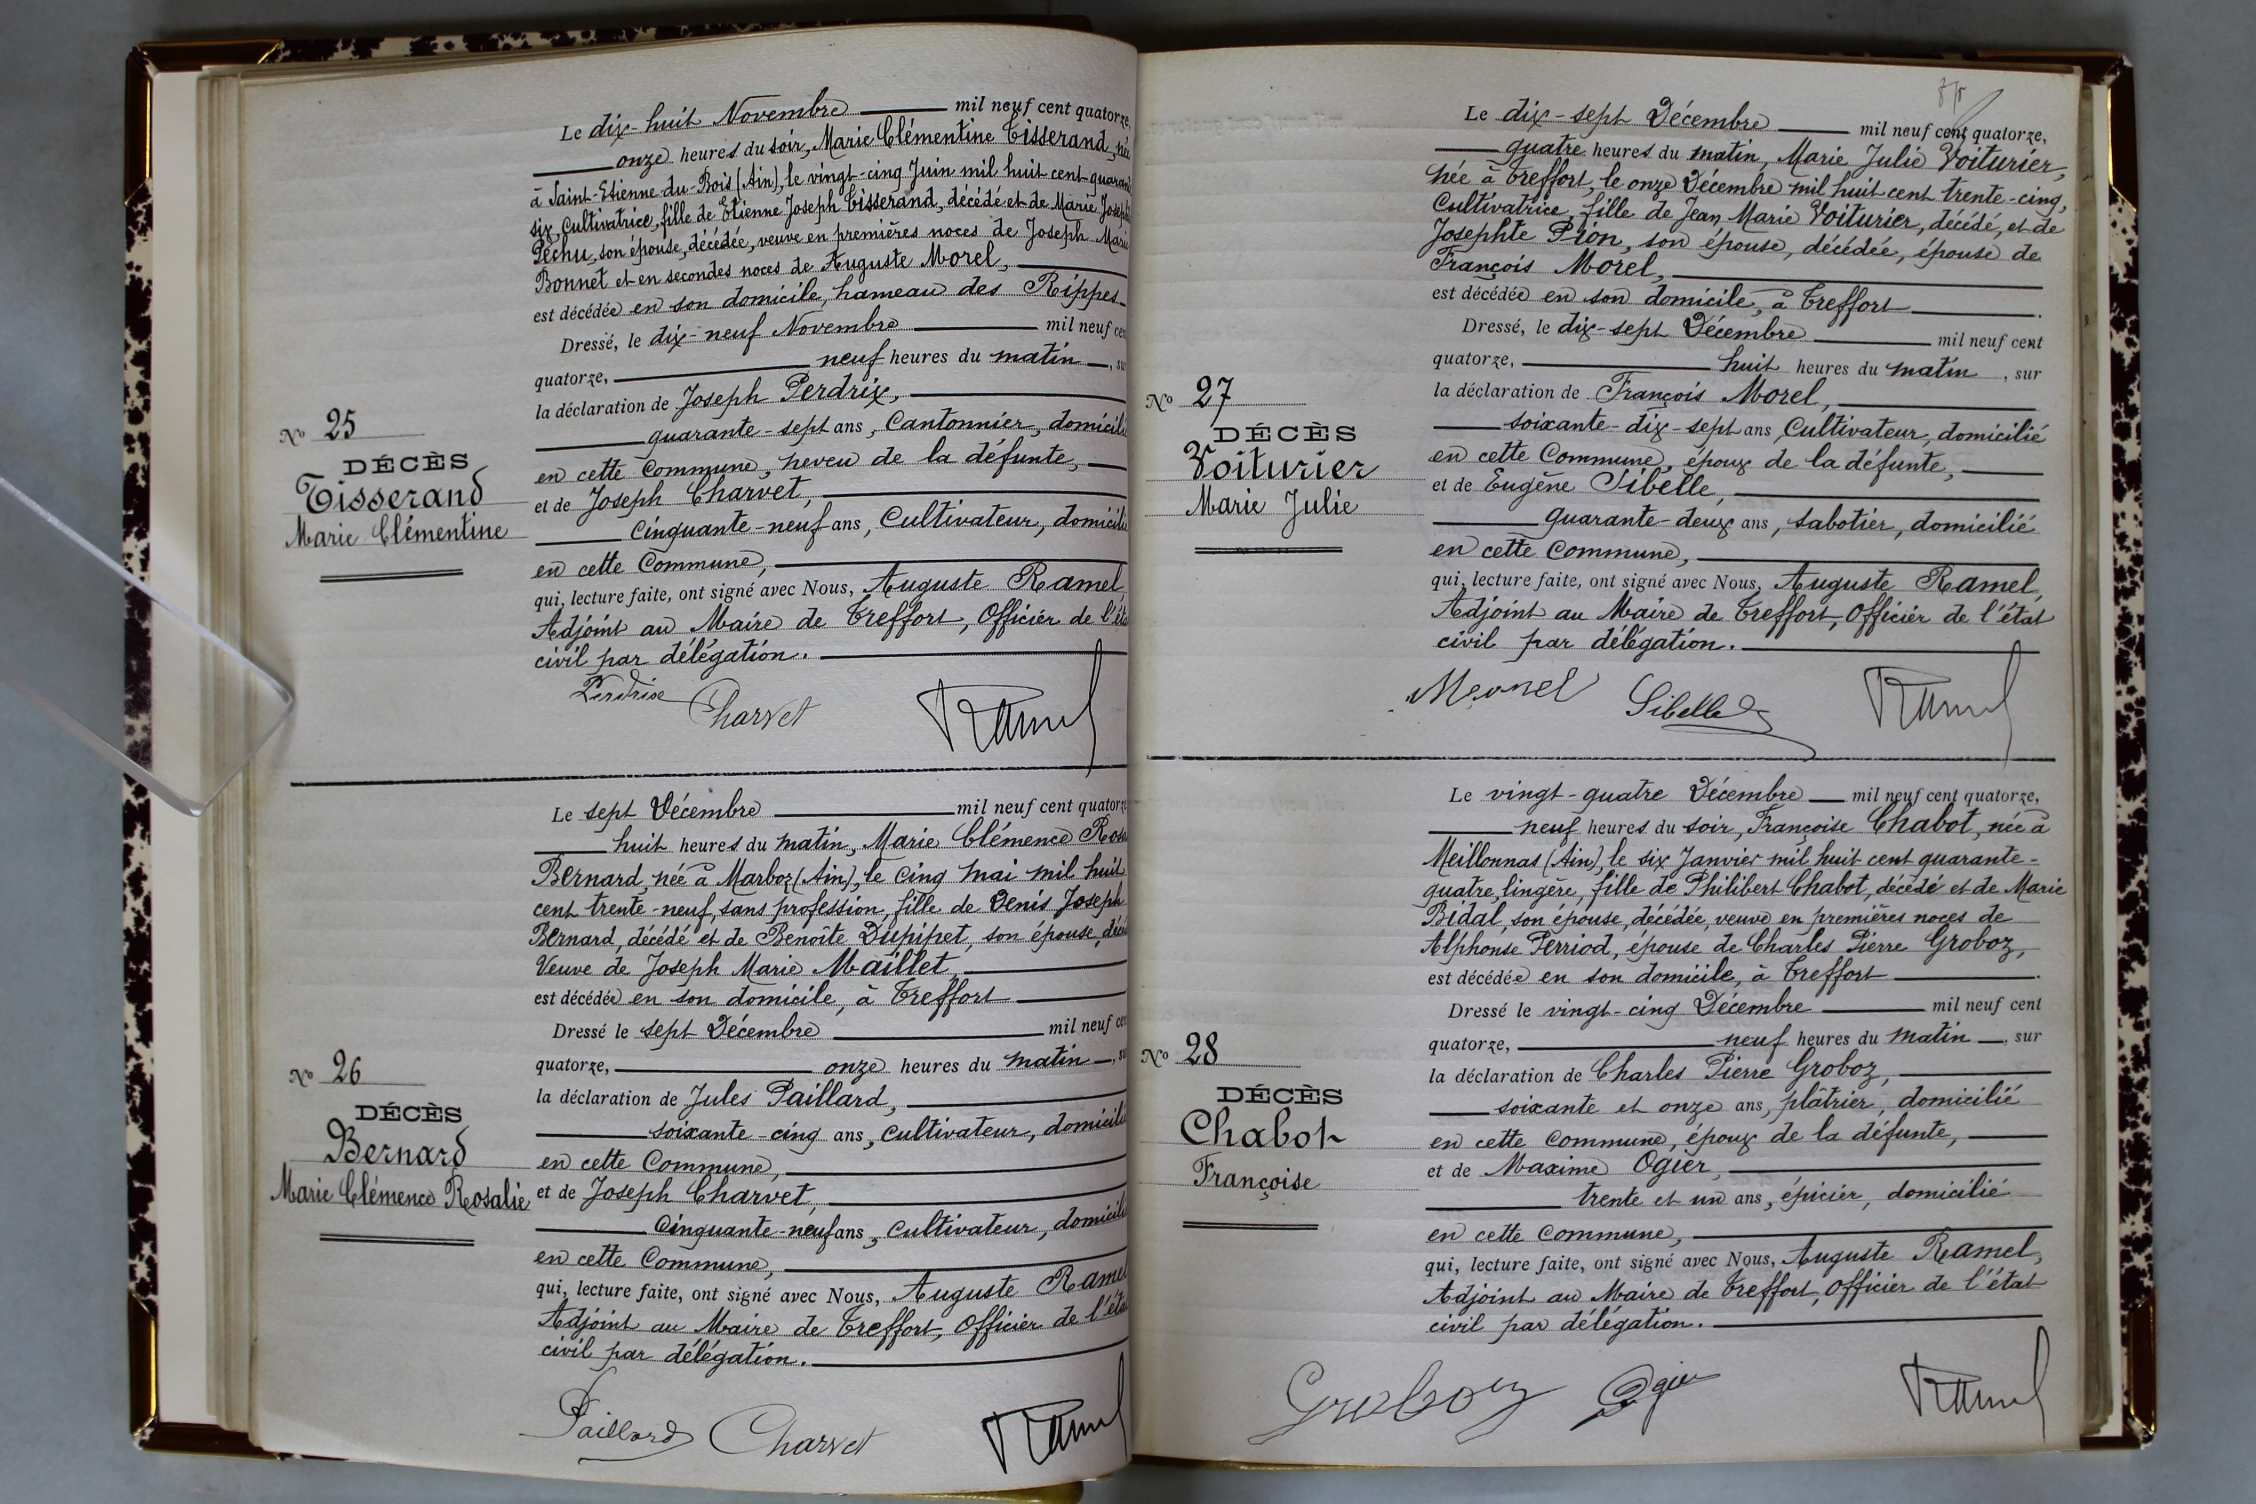 Le dix-huit Novembre mil neuf cent quatorze,
onze heures du soir, Marie Clémentine Tisserand, née
à Saint-Etienne-du-Bois (Ain), le vingt-cinq Juin mil huit cent quarante
six, Cultivatrice, fille de Etienne Joseph Tisserand, décédé et de Marie Josephte
Péchu, son épouse, décédée, veuve en premières noces de Joseph Marie
Bonnet et en secondes noces de Auguste Morel,
est décédée en son domicile, hameau des Rippes
Dressé, le dix-neuf Novembre mil neuf cent
quatorze, neuf heures du matin, sur
la déclaration de Joseph Perdrix,
quarante-sept ans, Cantonnier, domicilié
en cette Commune, neveu de la défunte,
et de Joseph Charvet,
Cinquante-neuf ans, Cultivateur, domicilié
en cette Commune,
qui, lecture faite, ont signé avec Nous, Auguste Ramel,
Adjoint au Maire de Treffort, Officier de l'état
civil par délégation.
Perdrix Charvet Ramel
No 25
DÉCÈS
Tisserand
Marie Clémentine
Le sept Décembre mil neuf cent quatorze
huit heures du matin, Marie Clémence Rosa
Bernard, née à Marboz (Ain), le cinq mai mil huit
cent trente-neuf, sans profession, fille de Denis Joseph
Bernard, décédé et de Benoîte Dupipet, son épouse, décé
Veuve de Joseph Marie Maillet,
est décédée en son domicile, à Treffort
Dressé le sept Décembre mil neuf cent
quatorze, onze heures du matin, sur
la déclaration de Jules Paillard,
soixante-cinq ans, cultivateur, domicilié
en cette Commune,
et de Joseph Charvet,
Cinquante-neuf ans, cultivateur, domicilié
en cette Commune,
qui, lecture faite, ont signé avec Nous, Auguste Ramel
Adjoint au Maire de Treffort, Officier de l'état
civil par délégation.
Paillard Charvet Ramel
No 26
DÉCÈS
Bernard
Marie Clémence Rosalie
Le dix-sept Décembre mil neuf cent quatorze,
quatre heures du matin, Marie Julie Voiturier,
née à Treffort, le onze Décembre mil huit cent trente-cinq,
Cultivatrice, fille de Jean Marie Voiturier, décédé, et de
Josephte Pion, son épouse, décédée, épouse de
François Morel,
est décédée en son domicile, à Treffort
Dressé, le dix-sept Décembre mil neuf cent
quatorze, huit heures du matin, sur
la déclaration de François Morel,
soixante-dix-sept ans, Cultivateur, domicilié
en cette Commune, époux de la défunte,
et de Eugène Sibelle,
quarante-deux ans, sabotier, domicilié
en cette Commune,
qui, lecture faite, ont signé avec Nous, Auguste Ramel,
Adjoint au Maire de Treffort, Officier de l'état
civil par délégation.
Morel Sibelle Ramel
No 27
DÉCÈS
Voiturier
Marie Julie
Le vingt-quatre Décembre mil neuf cent quatorze,
neuf heures du soir, Françoise Chabot, née à
Meillonnas (Ain), le six Janvier mil huit cent quarante-
quatre, lingère, fille de Philibert Chabot, décédé et de Marie
Bidal, son épouse, décédée, veuve en premières noces de
Alphonse Perriod, épouse de Charles Pierre Groboz,
est décédée en son domicile, à Treffort
Dressé le vingt-cinq Décembre mil neuf cent
quatorze, neuf heures du matin, sur
la déclaration de Charles Pierre Groboz,
soixante et onze ans, plâtrier, domicilié
en cette Commune, époux de la défunte,
et de Maxime Ogier,
trente et un ans, épicier, domicilié
en cette commune,
qui, lecture faite, ont signé avec Nous, Auguste Ramel,
Adjoint au Maire de Treffort, Officier de l'état
civil par délégation.
Groboz Ogier Ramel
No 28
DÉCÈS
Chabot
Françoise